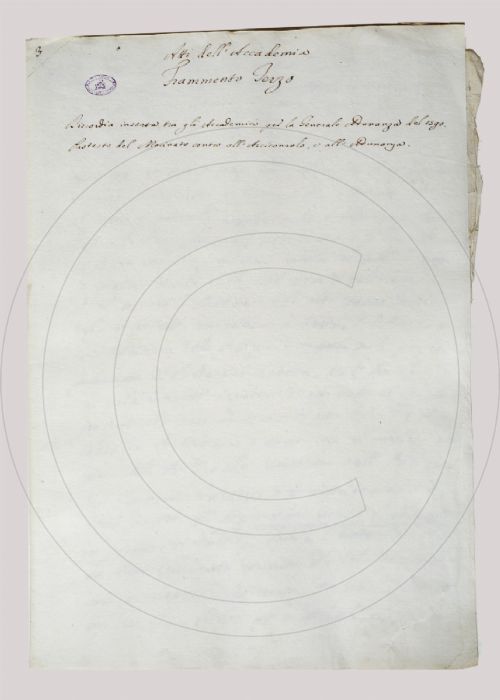 3
Atti dell'Accademia
Frammento Terzo
Discordia insorta tra gli Accademici per la Generale Adunanza del 1590.
Protesta del contro all'Arciconsolo, e all'Adunanza.